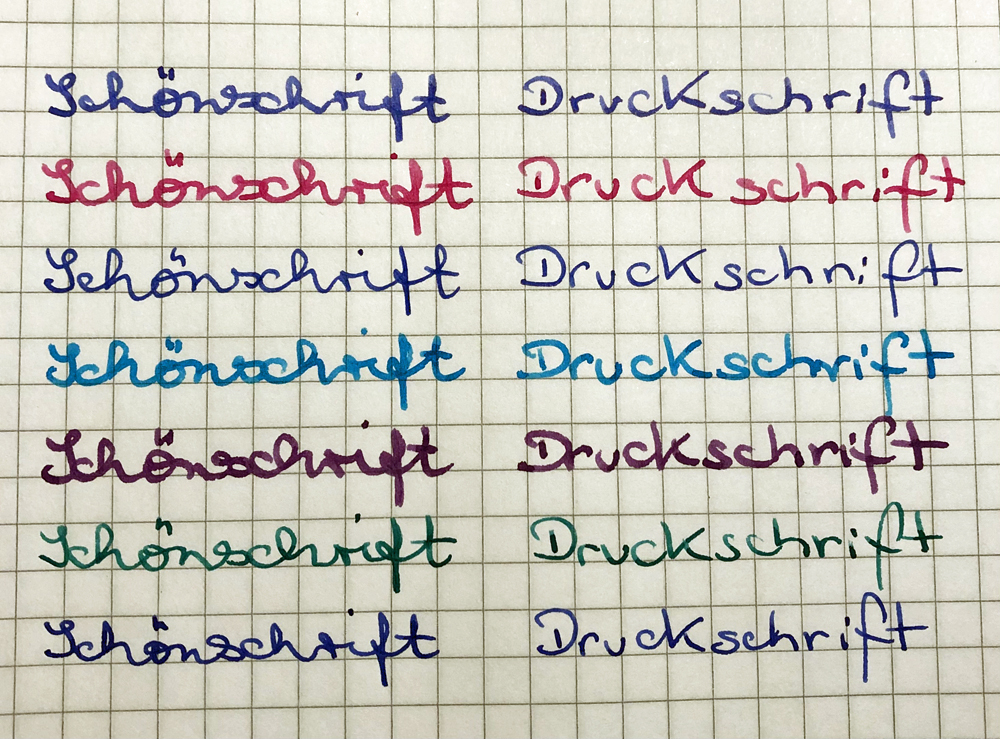 Schönschrift Druckschrift
Schönschrift Druck schrift
Schönschrift Druckschrift
Schönschrift Druckschrift
Schönschrift Druckschrift
Schönschrift Druckschrift
Schönschrift Druckschrift